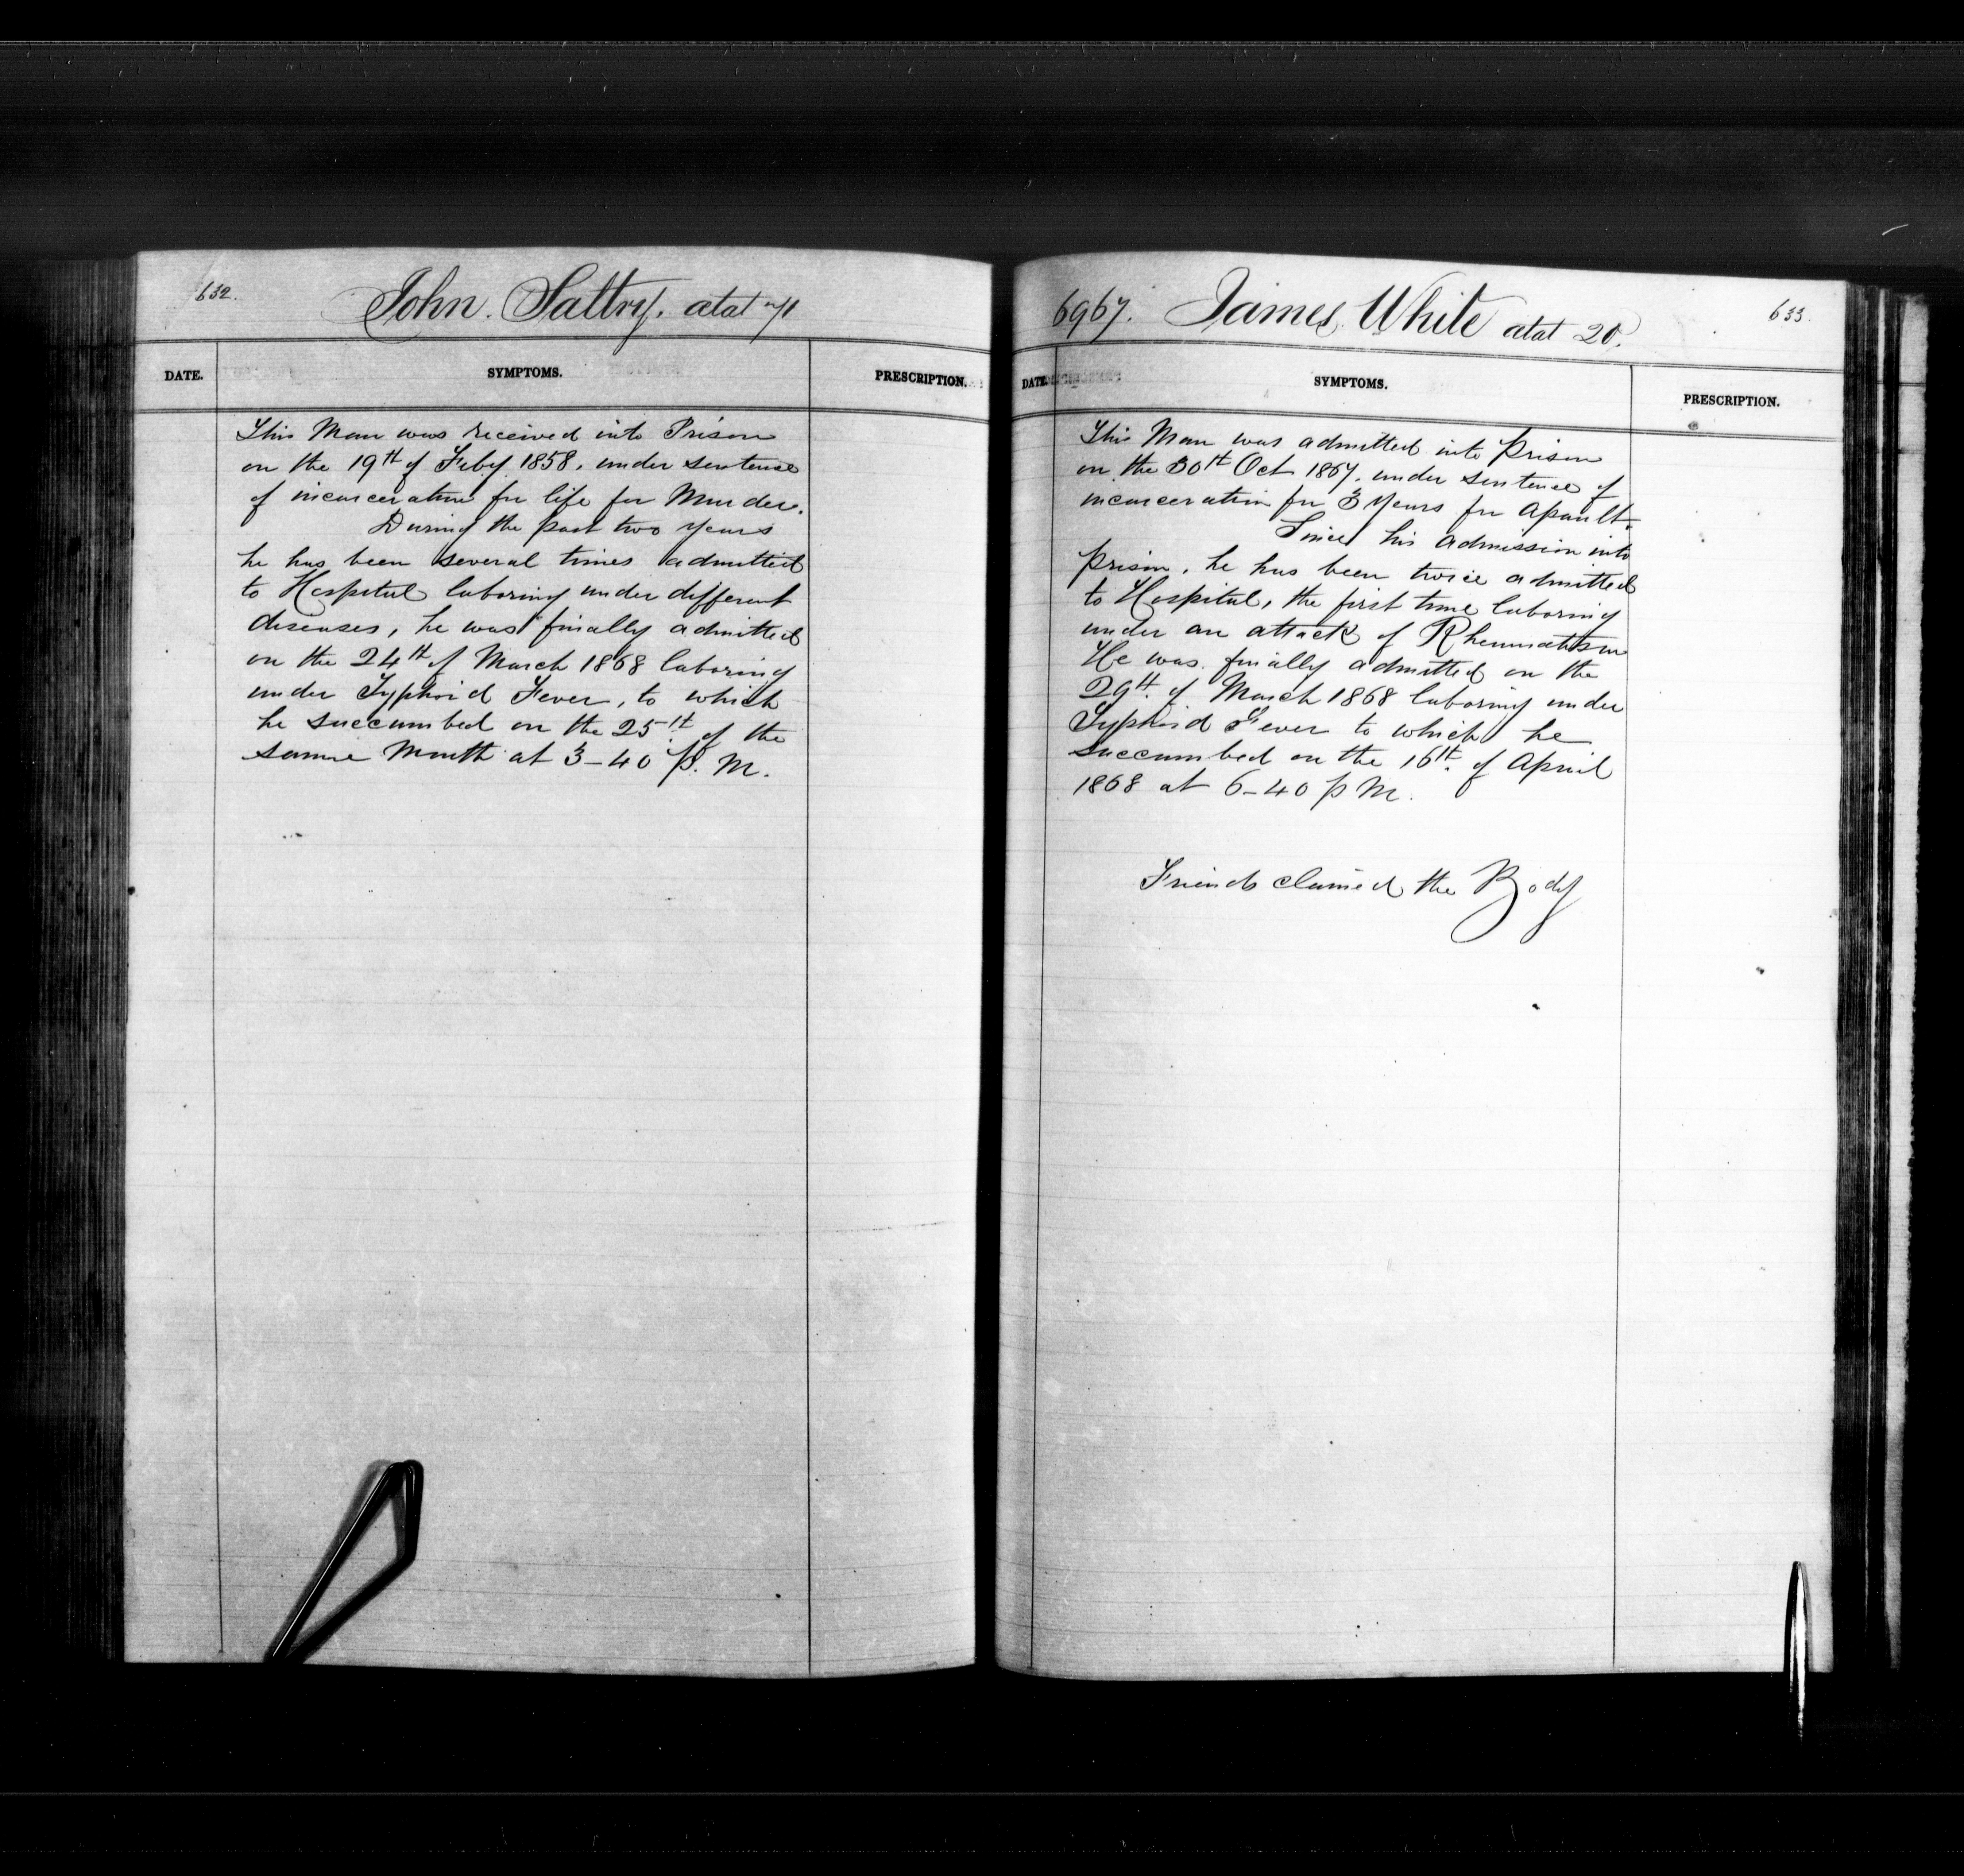 632.
John. Saltry. atat 71
DATE. SYMPTOMS. PRESCRIPTION.
This Man was received into Prison
on the 19th of Feby. 1858, under sentence
of incarceration for life for Murder.
During the past two years
he has been several times admitted
to Hospital laboring under different
diseases, he was finally admitted
on the 24th of March 1868 laboring
under Typhoid Fever, to which
he succumbed on the 25th of the
same Month at 3-40 P. M.
6967. James White atat 20.
633.
DATE. SYMPTOMS. PRESCRIPTION.
This Man was admitted into prison
on the 30th Oct 1867, under sentence of
incarceration for 3 Years for Assault.
Since his admission into
prison, he has been twice admitted
to Hospital, the first time laboring
under an attack of Rheumatism
He was finally admitted on the
29th. of March 1868 laboring under
Typhoid Fever to which he
succumbed on the 16th. of April
1868 at 6-40 p M.
Friends claimed the Body